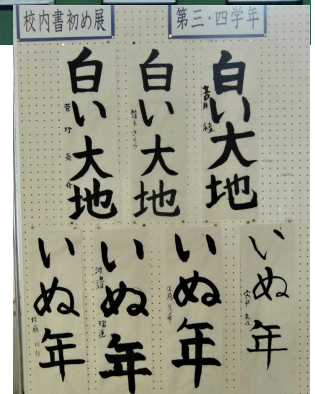 校内書初め展
第三・四学年
白い大地
白い大地
白い大地
いぬ年
いぬ年
いぬ年
いぬ年